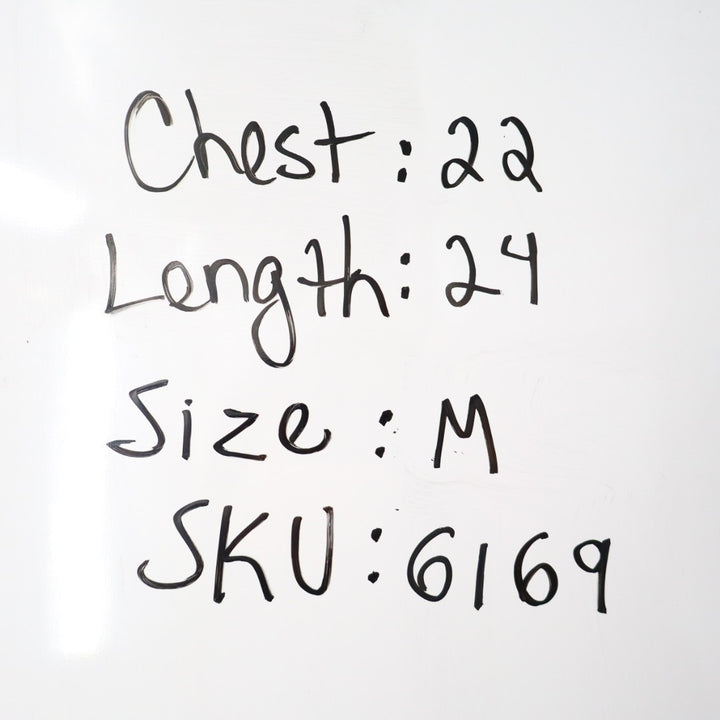 Chest : 22
Length : 24
Size : M
SKU : 6169